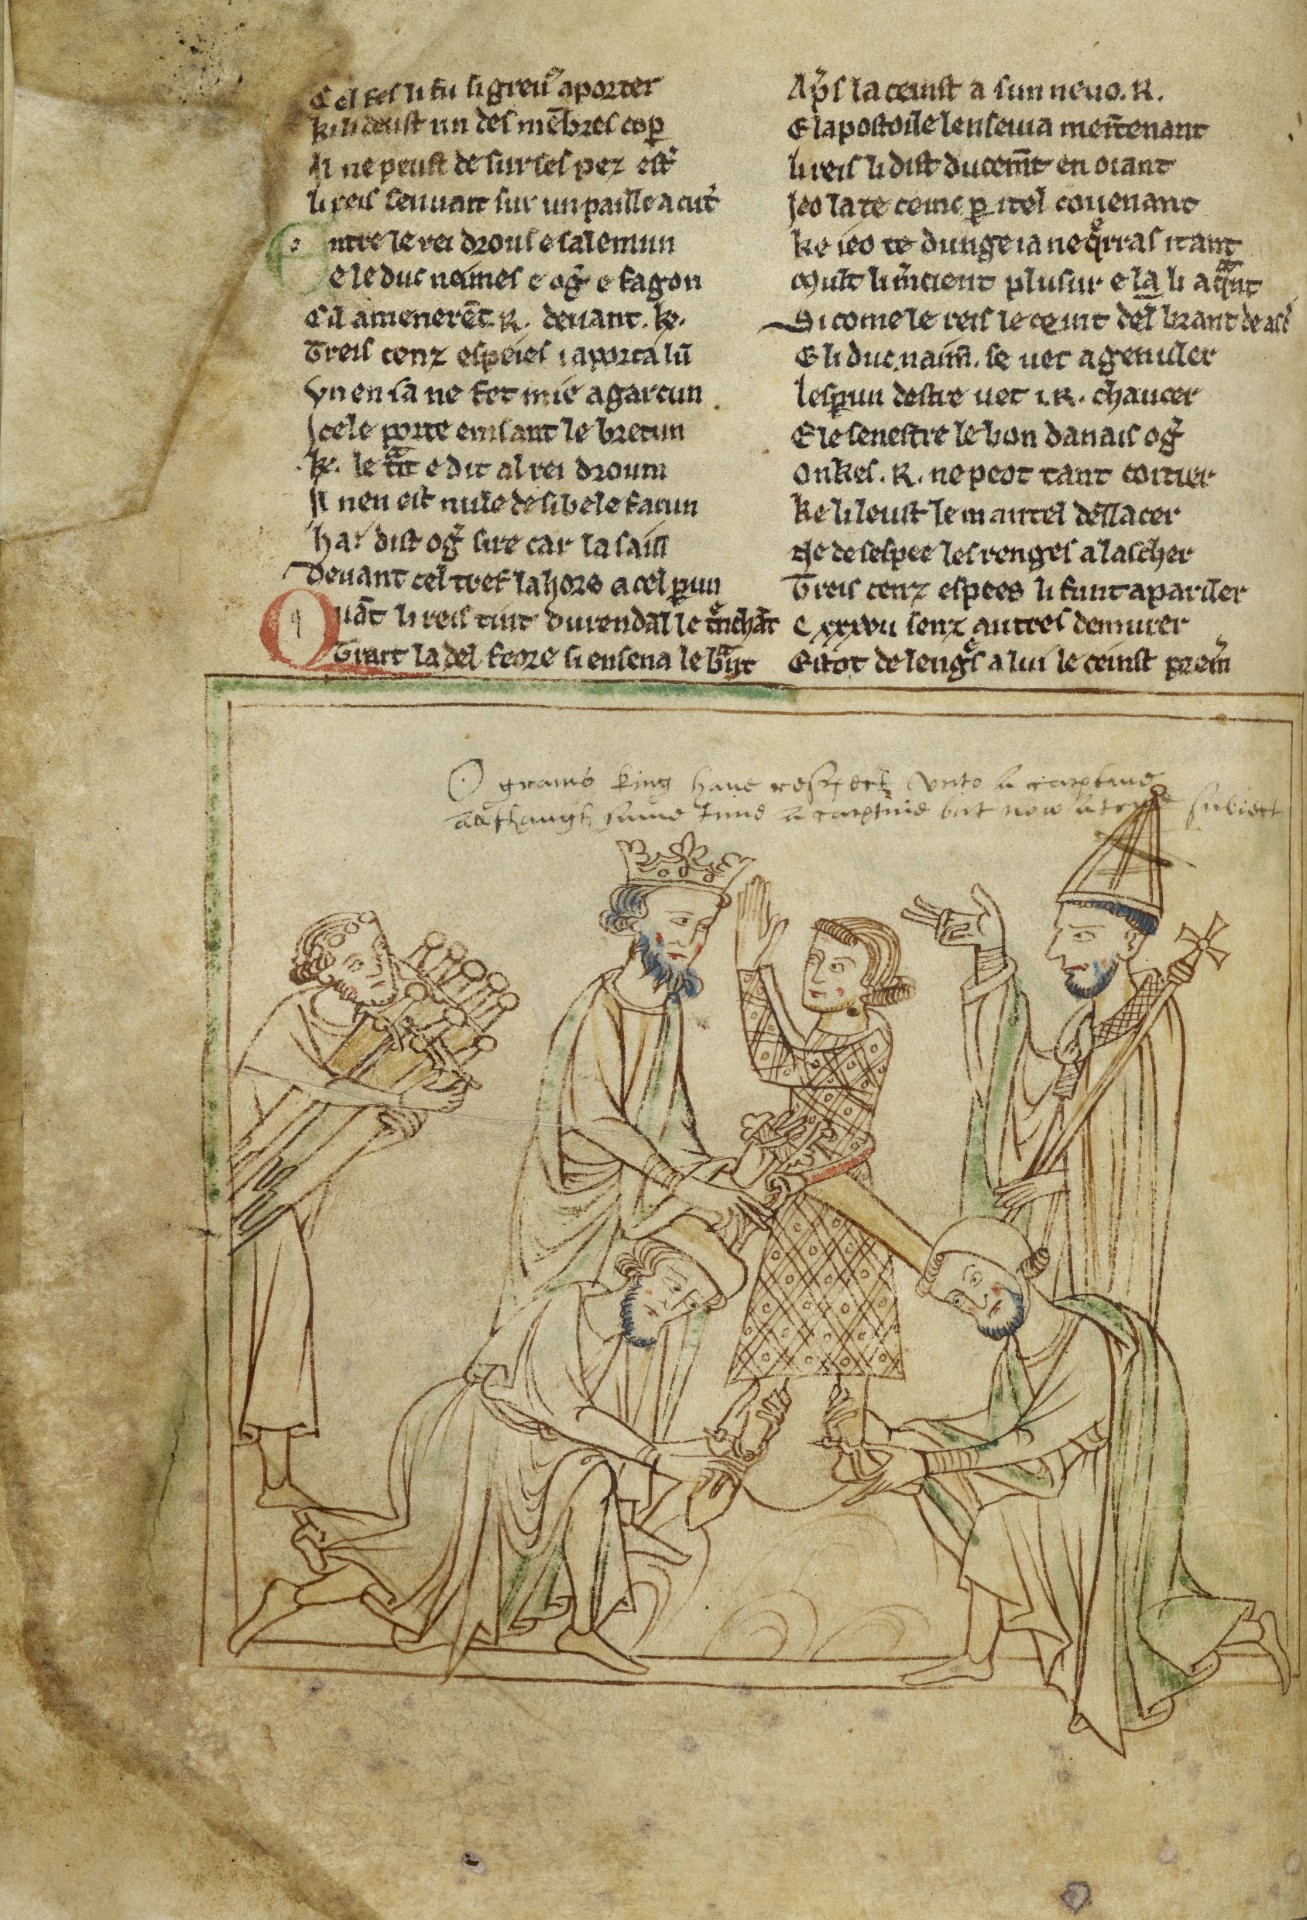 Cel fes li fu si greu᷑ aporter
ki li deust un des mēbres cop̄
Il ne peust de sur ses pez est᷑
li reis seuuait sur un paille a cut᷑
Entre le rei drous e salemun
e le duc neimes e og᷑ e fagon
Cil amenerēt .R. deuant .k.
Treis cenz espeies i aporta lū
Vn en i a ne fet mie a garcun
Icele porte eins ant le bretun
.k. le e dit al rei droum
Il nen est nule de si bele facun
ha. dist og᷑ sire car la saisi
Deuant cel tref la hors a cel ꝑun
Quāt li reis tint durendāl le
Trait la del feore si ensena le
Ap᷑s la ceinst a sun neuo .R.
E lapostoile lenseiua meītenant
li reis li dist ducemt̄ en oiant
Jeo la te ceinc ꝑ itel couenant
ke ieo te dunge ia ne itant
Mult li m᷑cient plusur e la li
Si come le reis le ceint del brant de
E li duc naim̄. se uet agenuler
lesꝑun destre uet i .R. chaucer
E le senestre le bon danais og᷑
Onkes .R. ne peot tant coitier
ke li leust le mantel deslacer
Ne de sespee les renges alascher
Treis cenz espees li funt apariler
C xxxvii senz autres demurer
li le ceinst prem᷑
O gratius king haue respeckt vnto a captiue
allthaugh sume time a captiue but now a true subiect